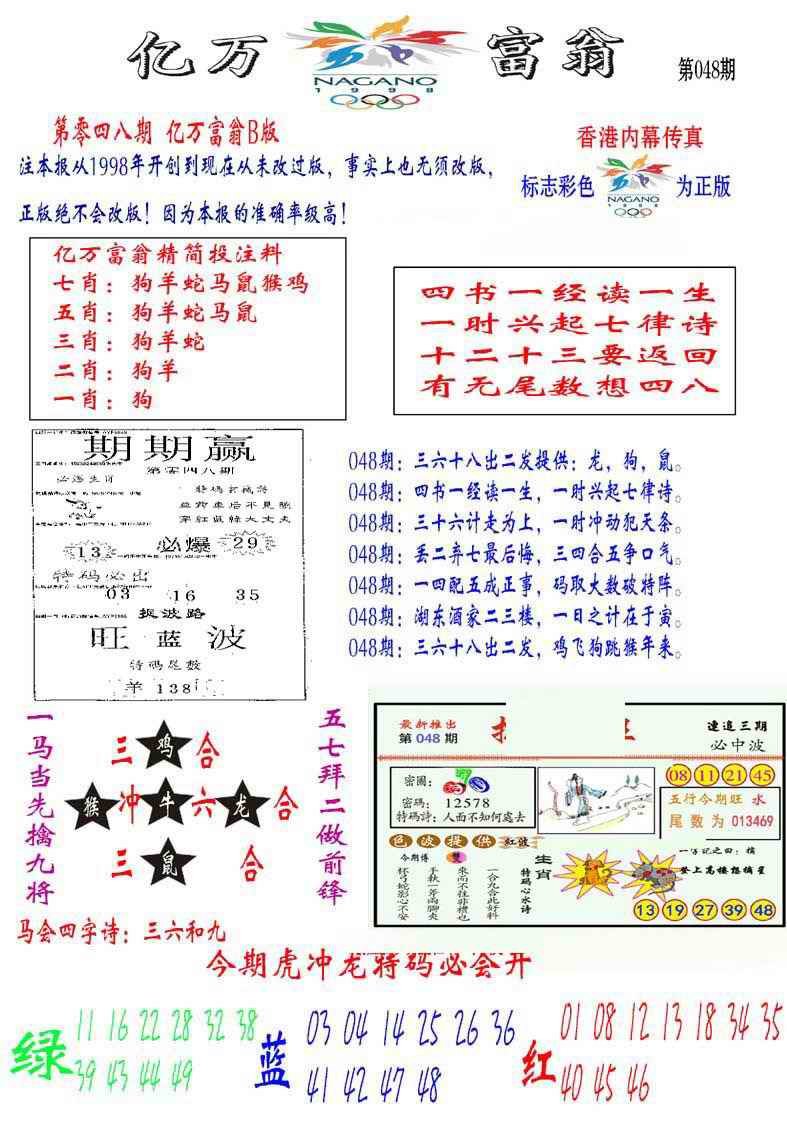 亿万
富翁
NAGANO
1998
第048期
第零四八期 亿万富翁B版
注本报从1998年开创到现在从未改过版，事实上也无须改版，
正版绝不会改版！因为本报的准确率级高！
香港内幕传真
标志彩色
NAGANO
1998
为正版
亿万富翁精简投注料
七肖：狗羊蛇马鼠猴鸡
五肖：狗羊蛇马鼠
三肖：狗羊蛇
二肖：狗羊
一肖：狗
四书一经读一生
一时兴起七律诗
十二十三要返回
有无尾数想四八
期期赢
第零四八期
必爆
13
29
特码必出
03 16 35
捉波路
旺蓝波
特码尾数
羊138
048期：三六十八出二发提供：龙，狗，鼠。
048期：四书一经读一生，一时兴起七律诗。
048期：三十六计走为上，一时冲动犯天条。
048期：丢二弃七最后悔，三四合五争口气。
048期：一四配五成正事，码取大数破特阵。
048期：湖东酒家二三楼，一日之计在于寅。
048期：三六十八出二发，鸡飞狗跳猴年来。
一马当先擒九将
三鸡合
猴冲牛六龙合
三鼠合
五七拜二做前锋
马会四字诗：三六和九
最新推出
第048期
連追三期
必中波
08 11 21 45
密圈：
密碼：12578
特碼詩：人面不知何處去
五行今期旺 水
尾数为 013469
色波提供 红波
今期博 雙
杯弓蛇影心不安
手執一斧兩腳夾
來而不往非禮也
一合九合此好料
特码心水诗
生肖
一字记之曰：摘
登上高楼想摘星
13 19 27 39 48
今期虎冲龙特码必会开
绿
11 16 22 28 32 38
39 43 44 49
蓝
03 04 14 25 26 36
41 42 47 48
红
01 08 12 13 18 34 35
40 45 46